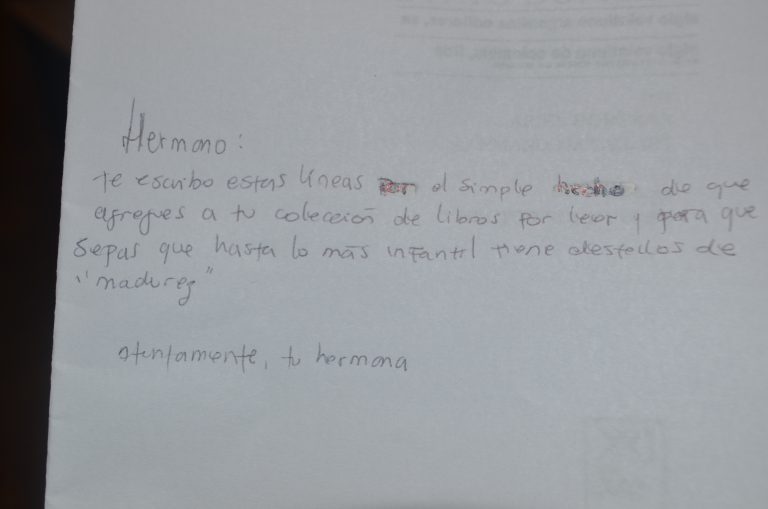 Hermano:
te escribo estas líneas por el simple hecho de que
agregues a tu colección de libros por leer y para que
sepas que hasta lo más infantil tiene destellos de
"madurez"
atentamente, tu hermana